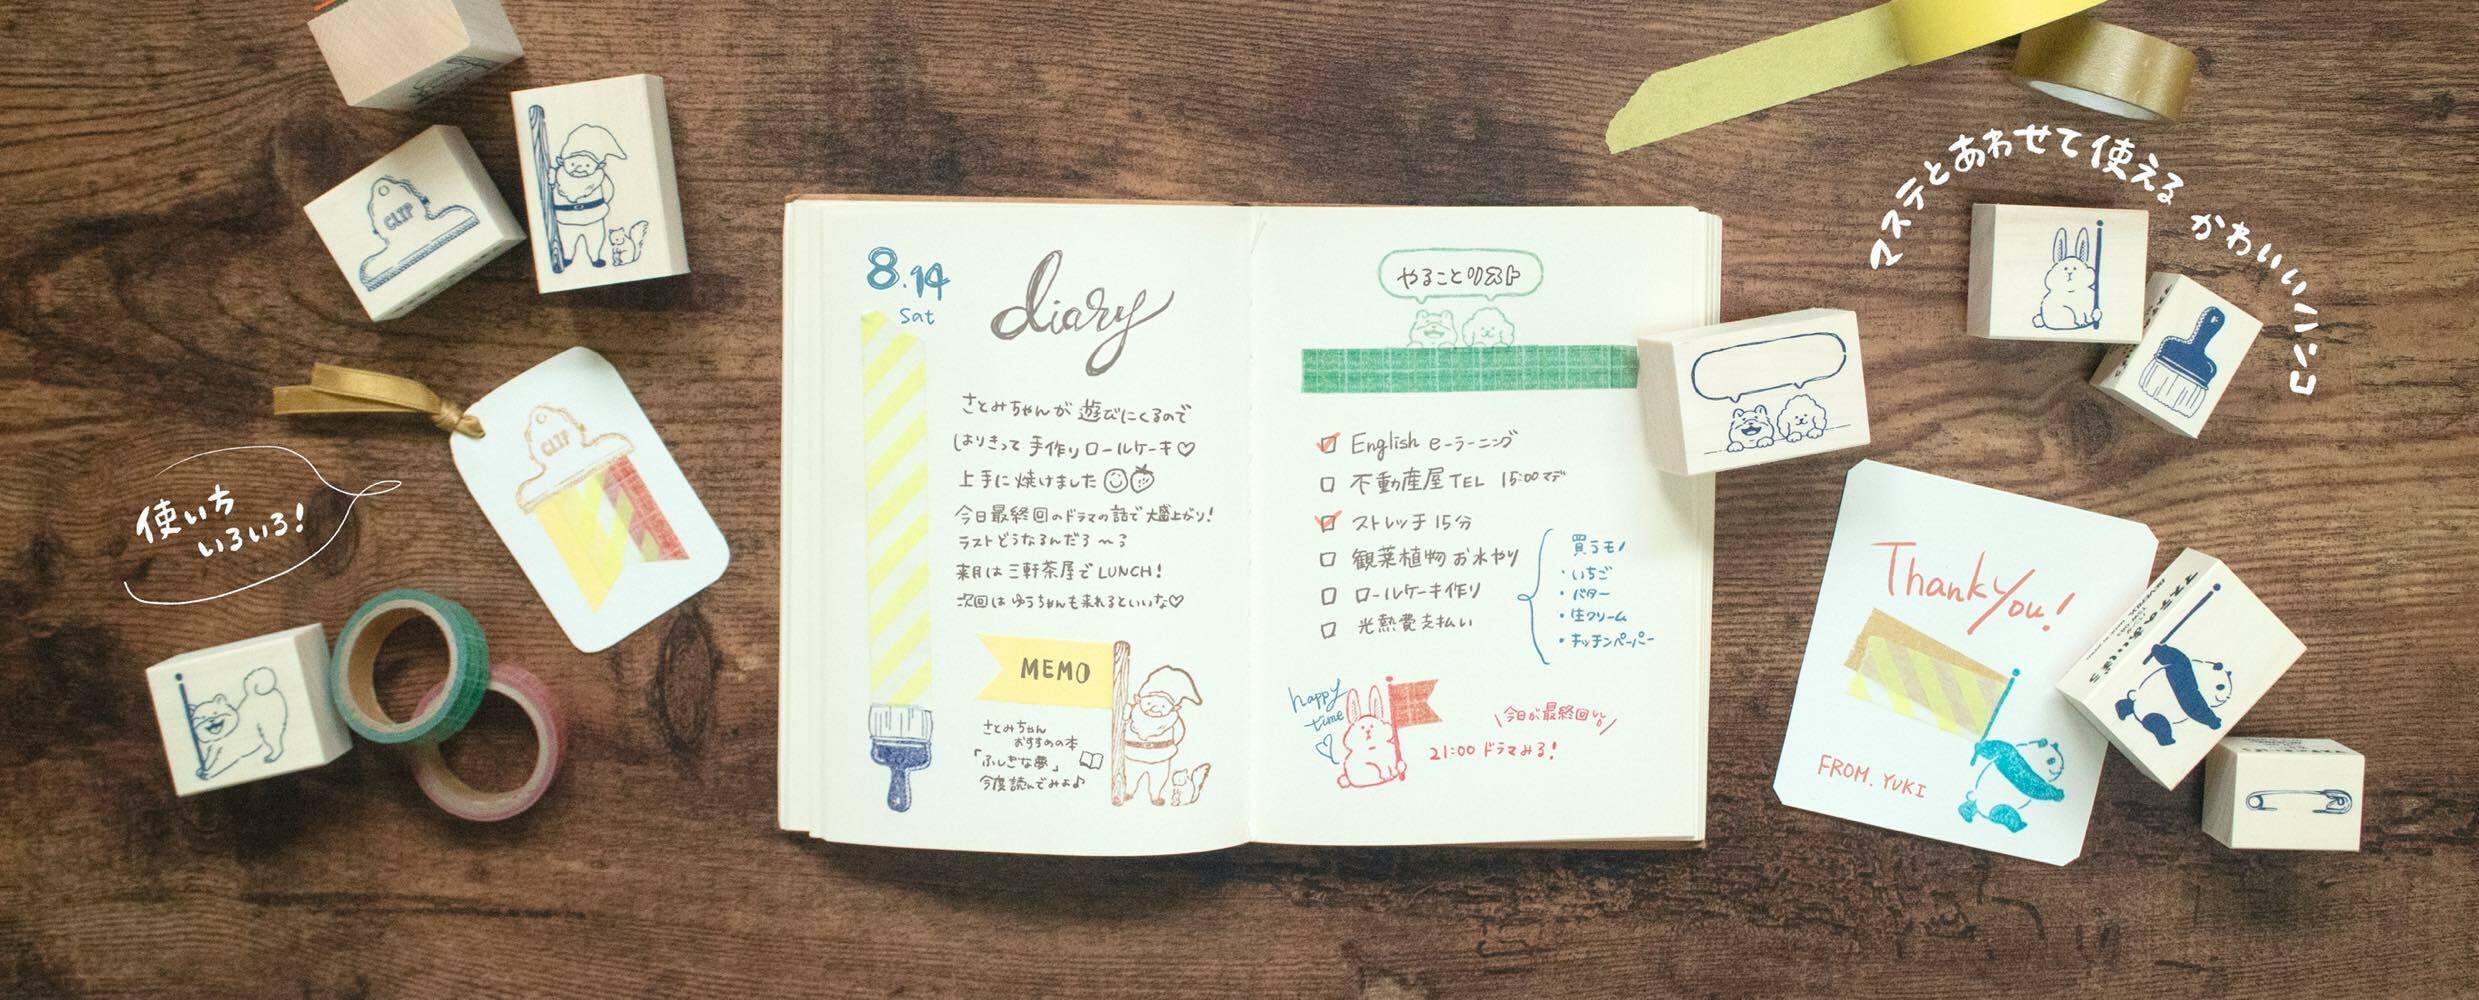 CLIP
使い方
いろいろ!
CLIP
8.14
Sat
diary
さとみちゃんが 遊びにくるので
はりきって 手作りロールケーキ♡
上手に焼けました
今日最終回のドラマの話で大盛上がり!
ラストどうなるんだろ〜ろ
来月は三軒茶屋でLUNCH!
次回はゆうちゃんも来れるといいな♡
MEMO
さとみちゃん
おすすめの本
「ふしぎな夢」
今度読んでみよ♪
やることリスト
English e-ラーニング
不動産屋TEL 15:00マデ
ストレッチ 15分
観葉植物 お水やり
ロールケーキ作り
光熱費支払い
買うモノ
・いちご
・バター
・生クリーム
・キッチンペーパー
happy
time
♡
\今日が最終回/
21:00 ドラマみる!
マステとあわせて使える かわいいハンコ
Thank You!
FROM. YUKI
マステのあいぼう